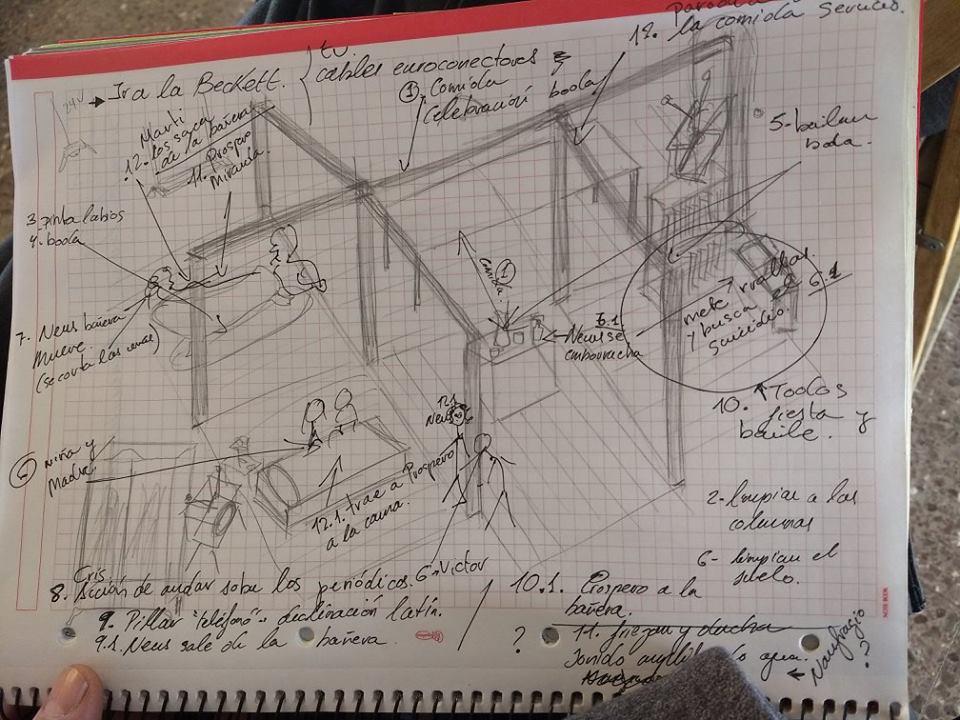 → Ir a la Beckett.
tv.
cables euroconectores
12.
la comida servicio.
24V
① Comida
Celebración boda
5- bailan
boda.
Marti
12. los saca
de la bañera
11. Prospero
Miranda.
3. pinta labios
4. boda
①
Comida
7. Neus bañera
mueve.
(se corta las venas)
6.1
← Neus se
emborracha
7
mete
y busca el 6.1
suicidio.
10. ↑ Todos
fiesta y
baile.
12.1
Neus
⑥ Niña y
Madre
12.1. trae a Prospero
a la cama.
2- limpiar a las
columnas
6- limpian el
suelo.
Cris.
8. Acción de andar sobre los periódicos.
6- Victor
9. Pillar "teléfono" - declinación latín.
9.1. Neus sale de la bañera.
10.1. Prospero a la
bañera.
? 11. friegan y ducha
Sonido agua.
← Naufragio
?
NOTE BOOK